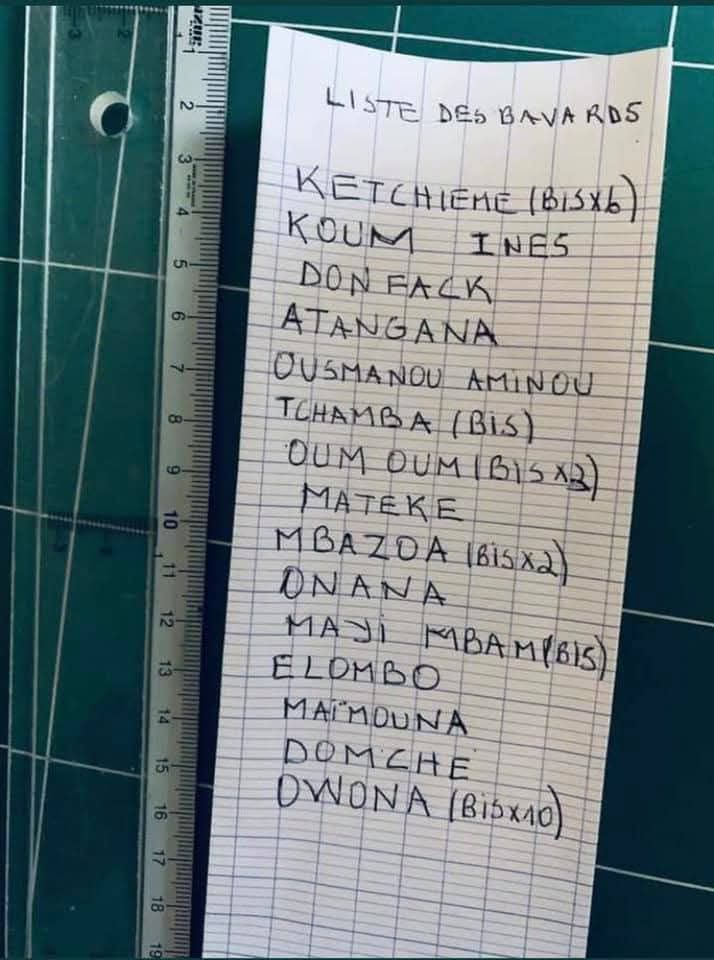 LISTE DES BAVARDS
KETCHIEME (BISX6)
KOUM INES
DONFACK
ATANGANA
OUSMANOU AMINOU
TCHAMBA (BIS)
OUM OUM (BIS X3)
MATEKE
MBAZOA (BISX2)
ONANA
MAJI MBAM (BIS)
ELOMBO
MAÏMOUNA
DOMCHE
OWONA (BISX10)
1
2
3
4
5
6
7
8
9
10
11
12
13
14
15
16
17
18
19